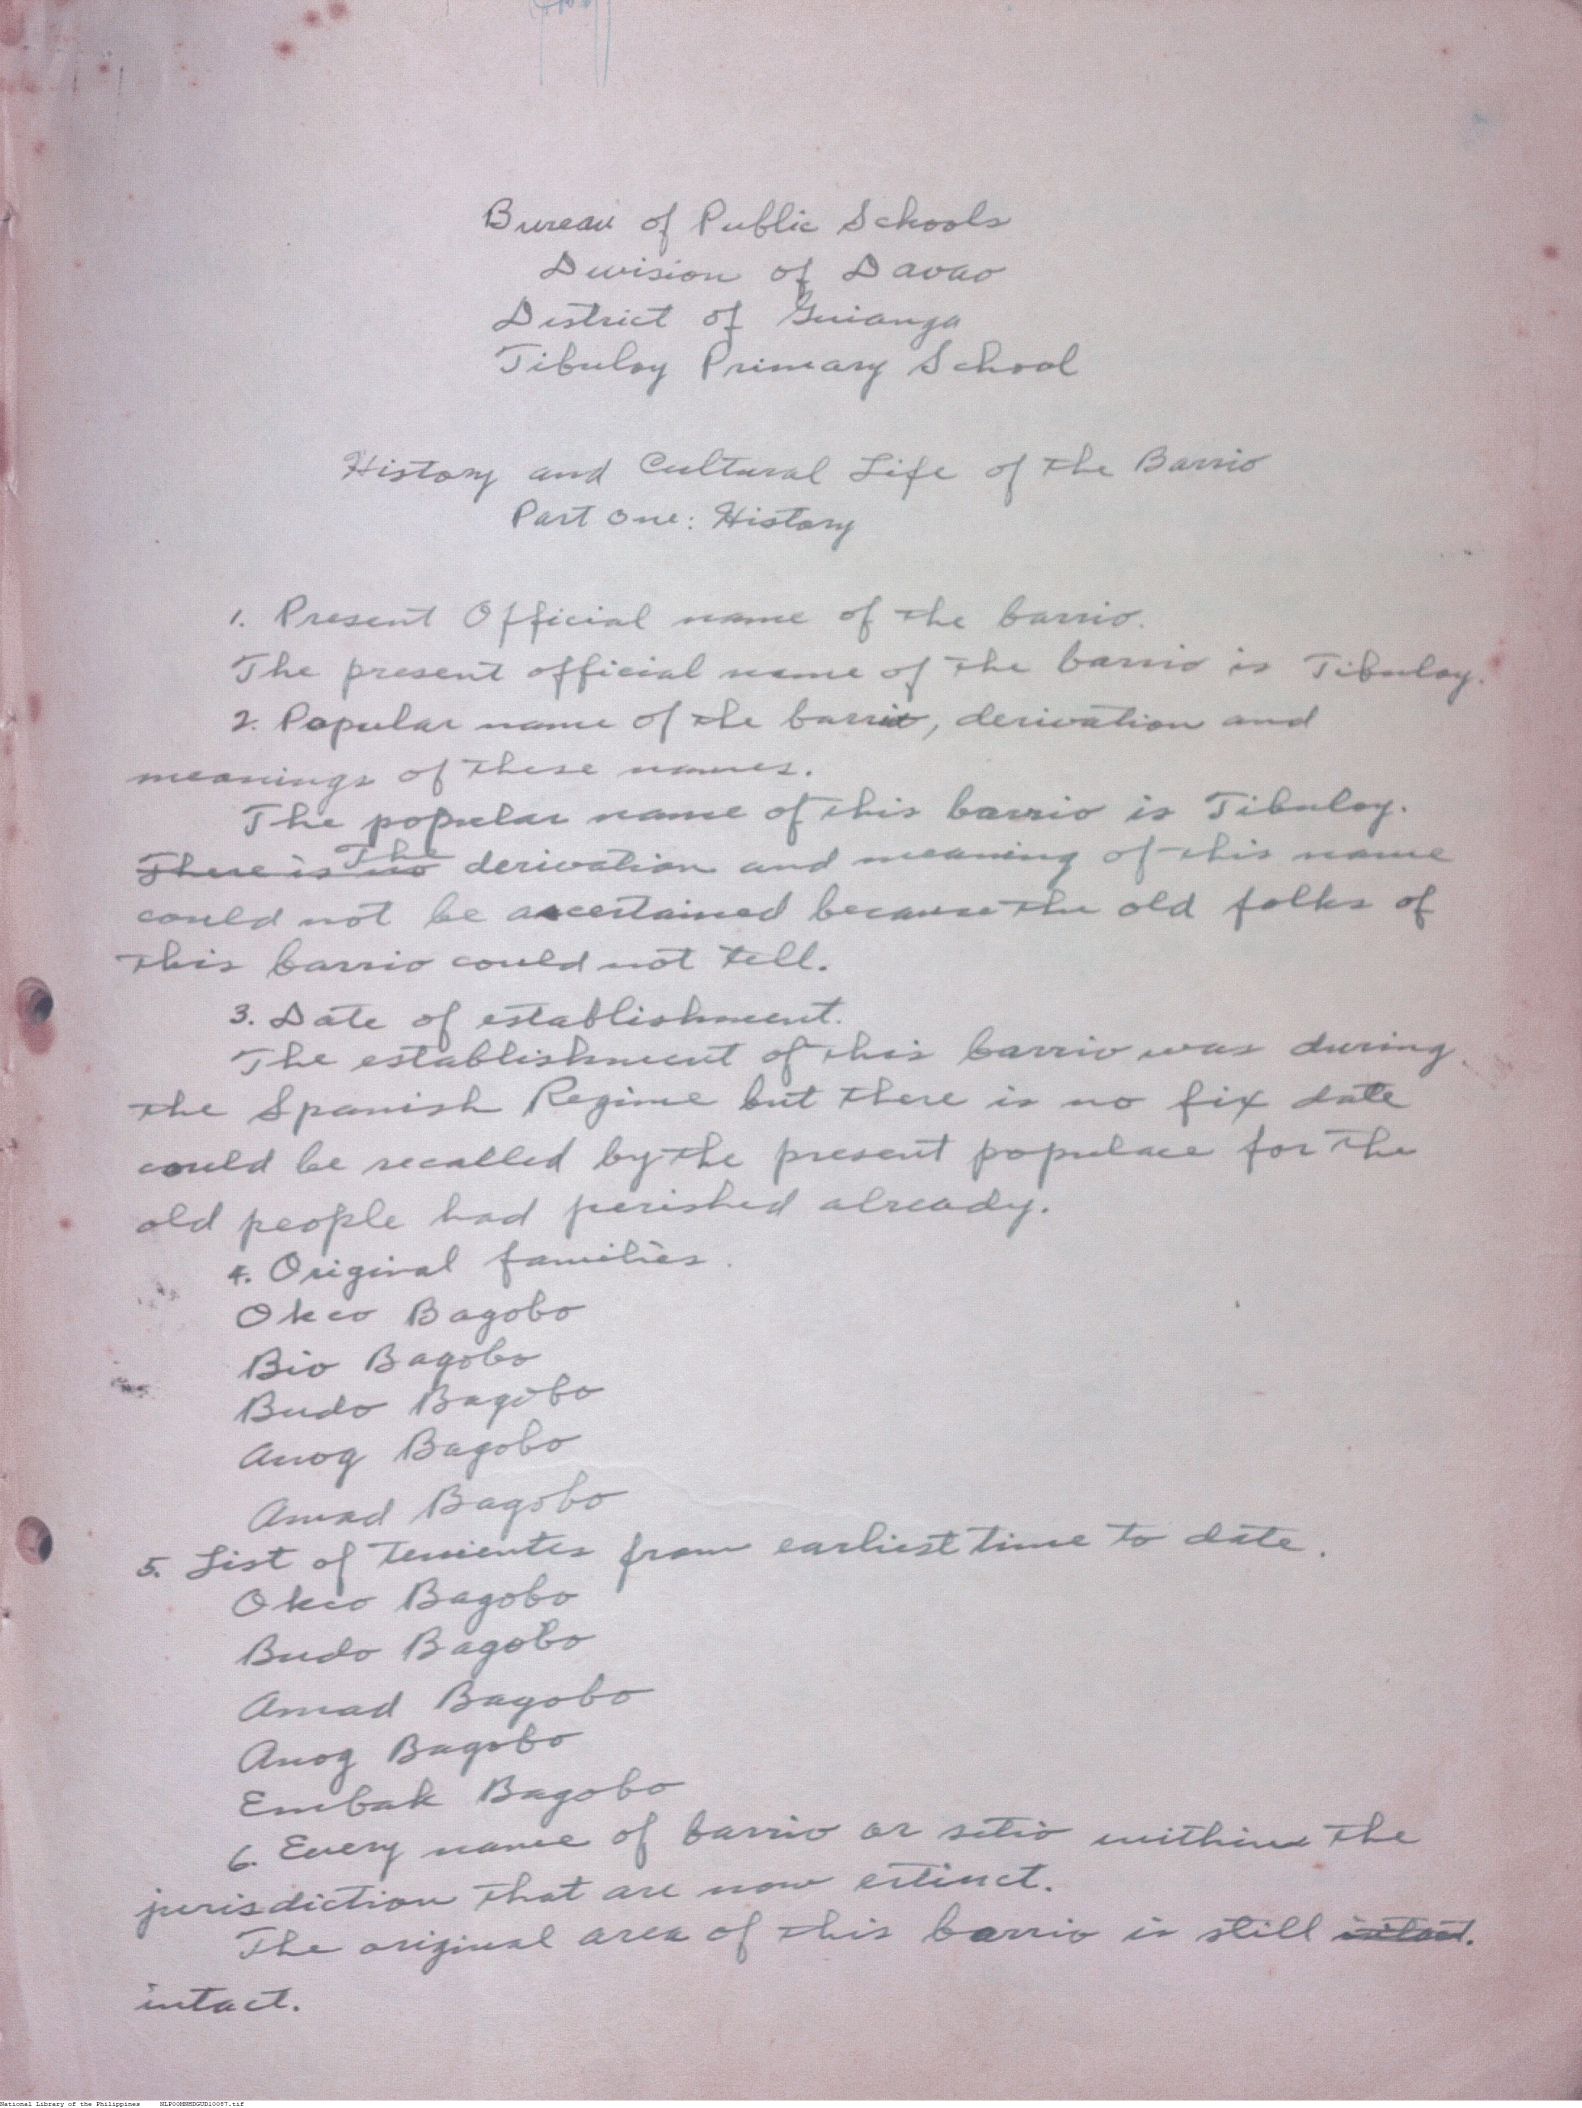 Bureau of Public Schools
Division of Davao
District of Guianga
Tibuloy Primary School
History and Cultural Life of the Barrio
Part One: History
1. Present Official name of the barrio.
The present official name of the barrio is Tibuloy.
2. Popular name of the barrio, derivation and
meanings of these names.
The popular name of this barrio is Tibuloy.
There is no The derivation and meaning of this name
could not be ascertained because the old folks of
this barrio could not tell.
3. Date of establishment.
The establishment of this barrio was during
the Spanish Regime but there is no fix date
could be recalled by the present populace for the
old people had perished already.
4. Original families.
Okco Bagobo
Bio Bagobo
Budo Bagobo
Anog Bagobo
Amad Bagobo
5. List of Tenientes from earliest time to date.
Okco Bagobo
Budo Bagobo
Amad Bagobo
Anog Bagobo
Embak Bagobo
6. Every name of barrio or sitio within the
jurisdiction that are now extinct.
The original area of this barrio is still intact.
intact.
National Library of the Philippines NLPOOMNHDGUD10087.tif